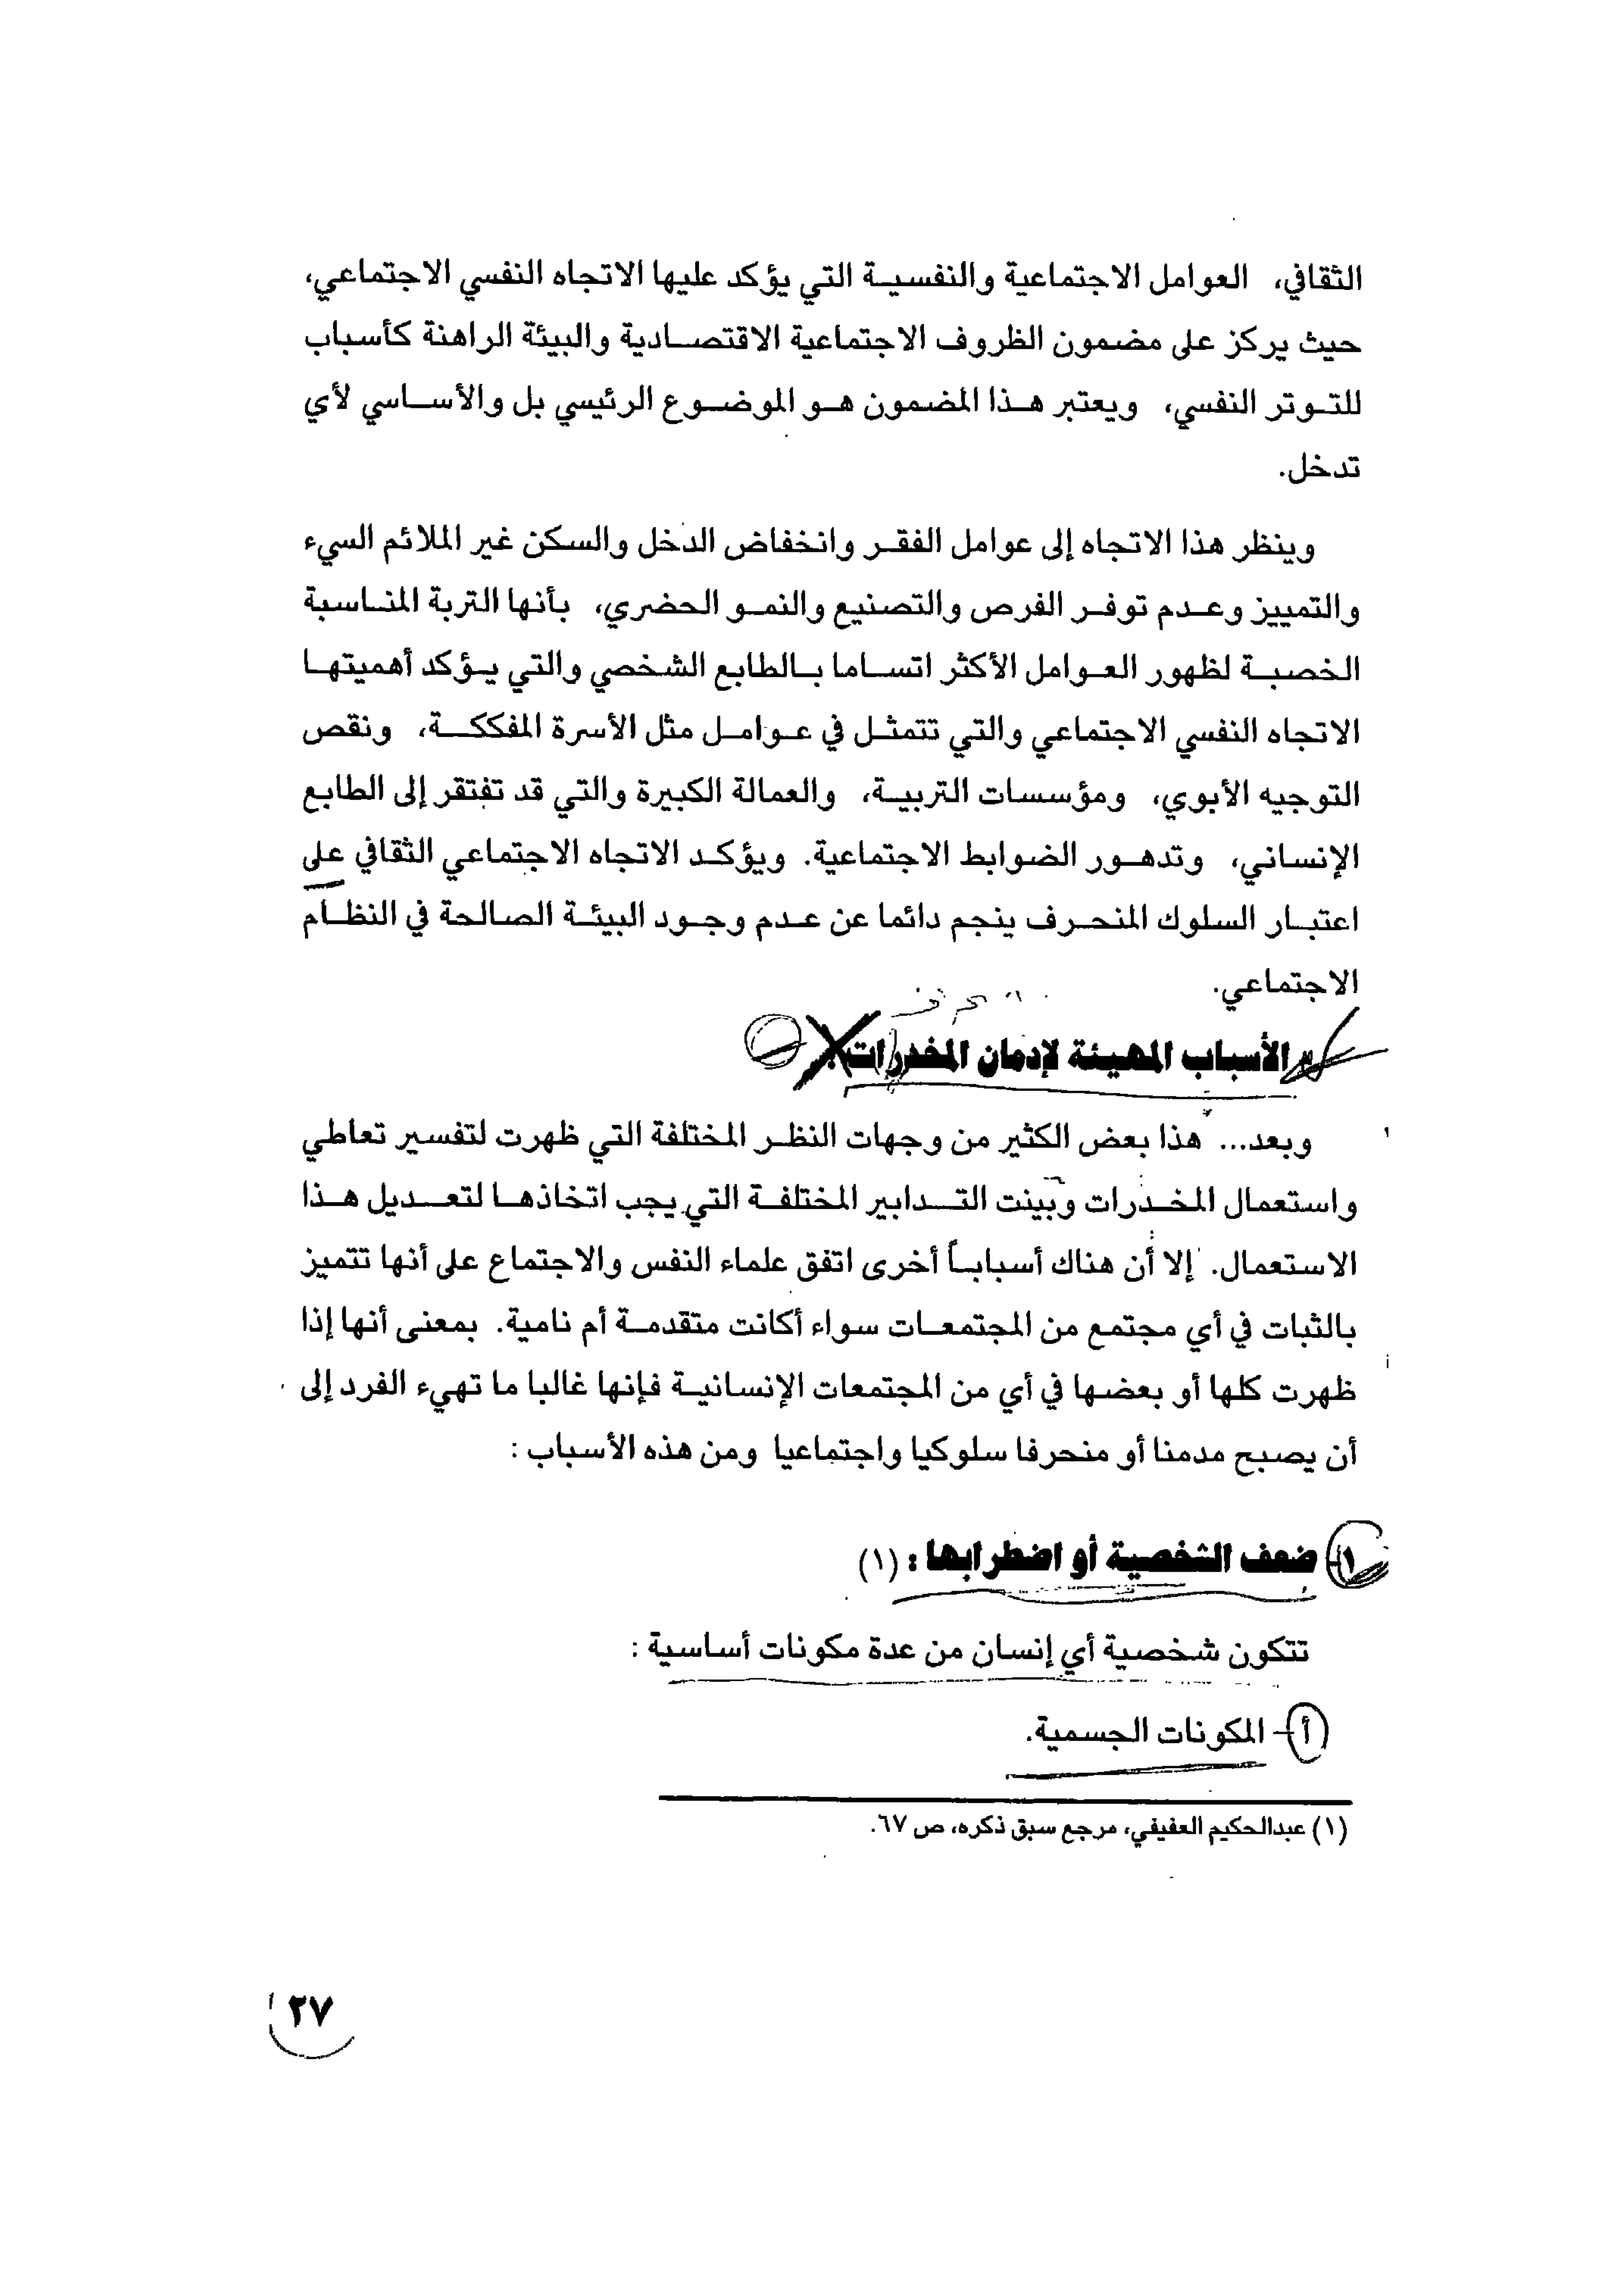 الثقافي، العوامل الاجتماعية والنفسية التي يؤكد عليها الاتجاه النفسي الاجتماعي،
حيث يركز على مضمون الظروف الاجتماعية الاقتصادية والبيئة الراهنة كأسباب
للتوتر النفسي، ويعتبر هذا المضمون هو الموضوع الرئيسي بل والأساسي لأي
تدخل.
وينظر هذا الاتجاه إلى عوامل الفقر وانخفاض الدخل والسكن غير الملائم السيء
والتمييز وعدم توفر الفرص والتصنيع والنمو الحضري، بأنها التربة المناسبة
الخصبة لظهور العوامل الأكثر اتساما بالطابع الشخصي والتي يؤكد أهميتها
الاتجاه النفسي الاجتماعي والتي تتمثل في عوامل مثل الأسرة المفككة، ونقص
التوجيه الأبوي، ومؤسسات التربية، والعمالة الكبيرة والتي قد تفتقر إلى الطابع
الإنساني، وتدهور الضوابط الاجتماعية. ويؤكد الاتجاه الاجتماعي الثقافي على
اعتبار السلوك المنحرف ينجم دائما عن عدم وجود البيئة الصالحة في النظام
الاجتماعي.
الأسباب المهيئة لإدمان المخدرات
وبعد... هذا بعض الكثير من وجهات النظر المختلفة التي ظهرت لتفسير تعاطي
واستعمال المخدرات وبينت التدابير المختلفة التي يجب اتخاذها لتعديل هذا
الاستعمال. إلا أن هناك أسباباً أخرى اتفق علماء النفس والاجتماع على أنها تتميز
بالثبات في أي مجتمع من المجتمعات سواء أكانت متقدمة أم نامية. بمعنى أنها إذا
ظهرت كلها أو بعضها في أي من المجتمعات الإنسانية فإنها غالبا ما تهيء الفرد إلى
أن يصبح مدمنا أو منحرفا سلوكيا واجتماعيا ومن هذه الأسباب :
١- ضعف الشخصية أو اضطرابها : (١)
تتكون شخصية أي إنسان من عدة مكونات أساسية :
أ- المكونات الجسمية.
(١) عبدالحكيم العفيفي، مرجع سبق ذكره، ص ٦٧.
٢٧